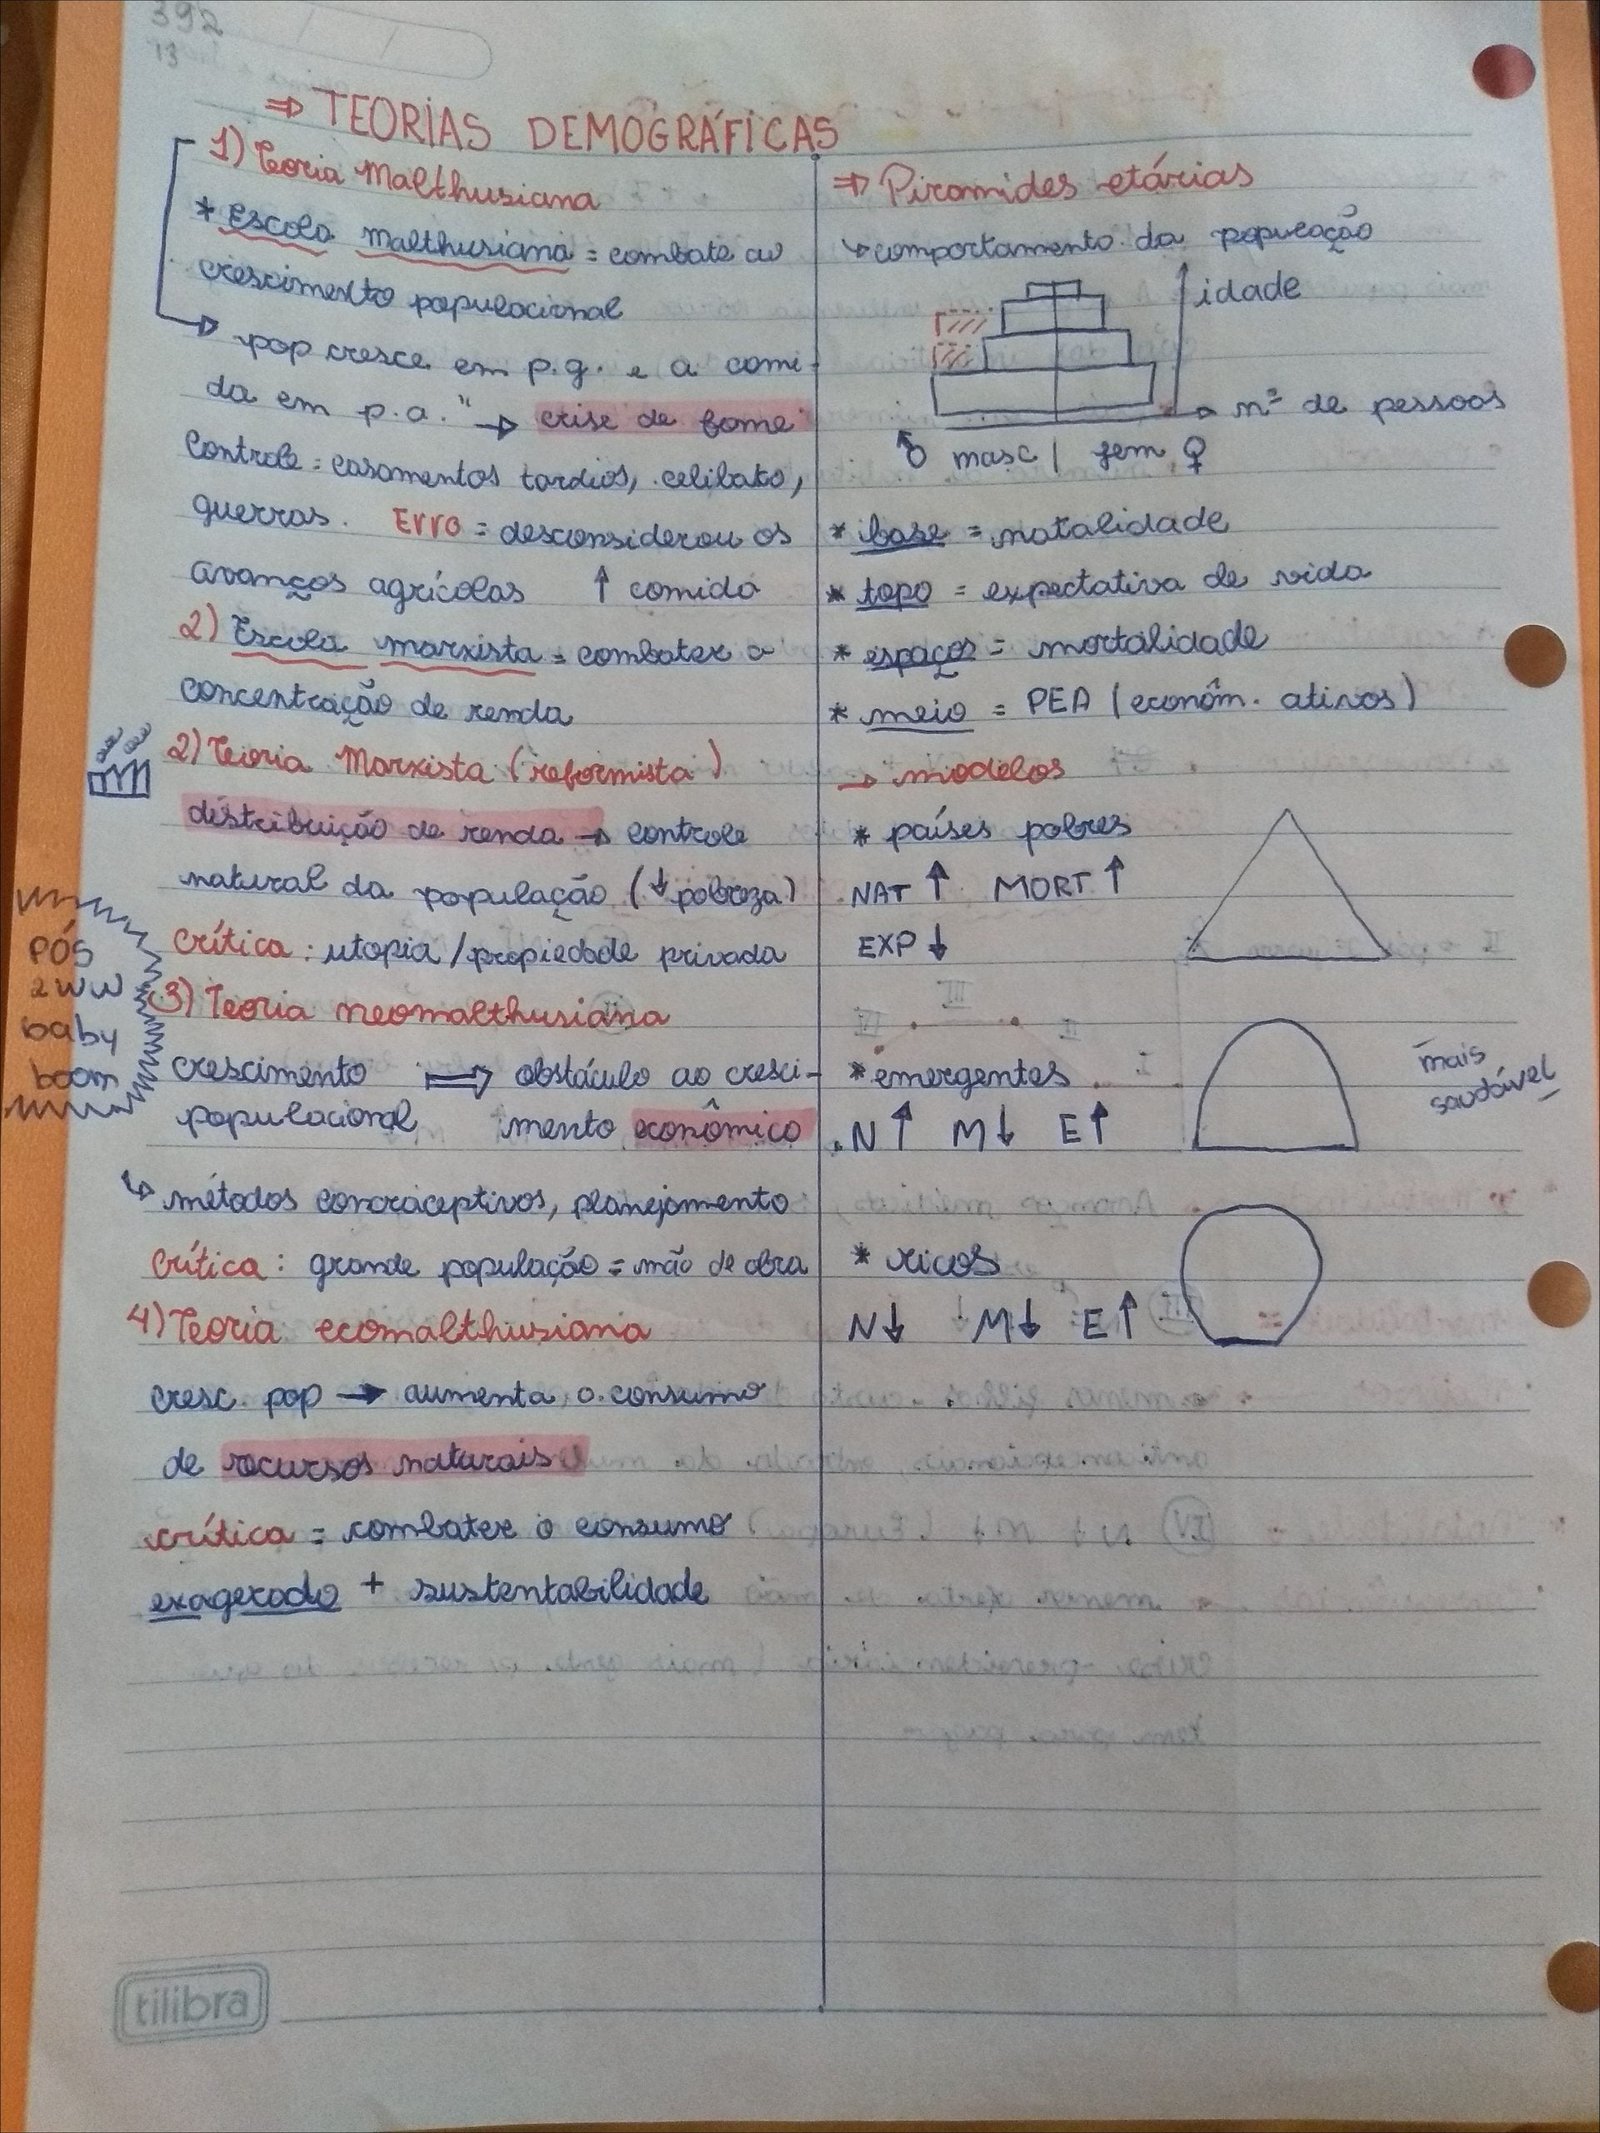 392
13
⇒ TEORIAS DEMOGRÁFICAS
1) Teoria Malthusiana
* Escola malthusiana = combate ao
crescimento populacional
pop cresce em p.g. e a comi-
da em p.a." → crise de fome
Controle = casamentos tardios, celibato,
guerras. Erro = desconsiderou os
avanços agrícolas ↑ comida
2) Escola marxista = combater a
concentração de renda
2) Teoria Marxista (reformista)
distribuição de renda → controle
natural da população (↓ pobreza)
crítica : utopia / propiedade privada
PÓS
2WW
baby
boom
3) Teoria neomalthusiana
crescimento ⇒ obstáculo ao cresci-
populacional mento econômico
↳ métodos concraceptivos, planejamento
crítica : grande população = mão de obra
4) Teoria ecomalthusiana
cresc. pop → aumenta o consumo
de recursos naturais
crítica = combater o consumo
exagerado + sustentabilidade
⇒ Piramides etárias
↳ comportamento da população
idade
nº de pessoas
♂ masc | fem ♀
* base = natalidade
* topo = expectativa de vida
* espaços = mortalidade
* meio = PEA (econôm. ativos)
→ modelos
* países pobres
NAT ↑ MORT ↑
EXP ↓
* emergentes
N ↑ M ↓ E ↑
mais
saudável
* ricos
N ↓ M ↓ E ↑
tilibra